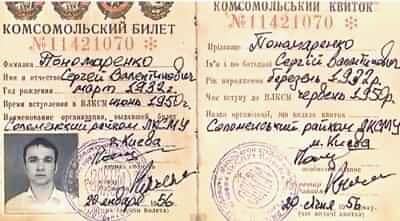 КОМСОМОЛЬСКИЙ БИЛЕТ
№ 11421070
Фамилия Пономаренко
Имя и отчество Сергей Валентинович
Год рождения март 1932 г.
Время вступления в ВЛКСМ июнь 1950 г.
Наименование организации, выдавшей билет
Соломенский райком ЛКСМУ
г. Киева
20 января 1956
КОМСОМОЛЬСЬКИЙ КВИТОК
№ 11421070
Прізвище Пономаренко
Ім'я і по батькові Сергій Валентинович
Рік народження березень 1932 г.
Час вступу до ВЛКСМ червень 1950 р.
Назва організації, що видала квиток
Соломенський райком ЛКСМУ
м. Києва
20 січня 1956